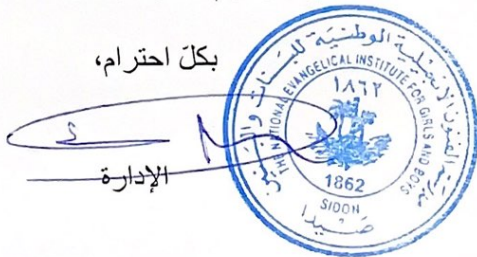 بكلّ احترام،
الإدارة
مدرسة الفنون الانجيلية الوطنية للبنات والبنين
THE NATIONAL EVANGELICAL INSTITUTE FOR GIRLS AND BOYS
١٨٦٢
1862
SIDON
صيدا